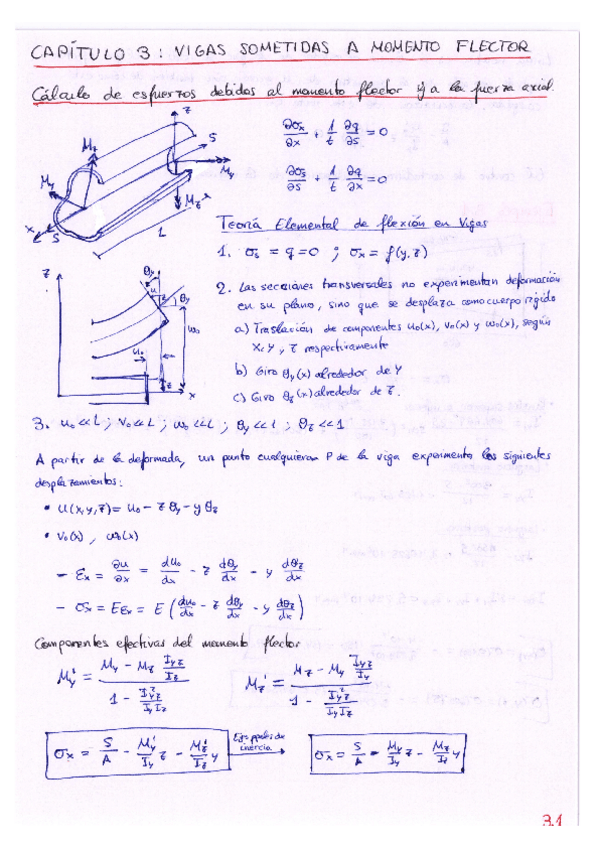 CAPÍTULO 3: VIGAS SOMETIDAS A MOMENTO FLECTOR
Cálculo de esfuerzos debidos al momento flector y a la fuerza axial.
∂σx/∂x + 1/t ∂q/∂s = 0
∂σs/∂s + 1/t ∂q/∂x = 0
z
S
My
Mz
x
L
Teoría Elemental de flexión en Vigas
1. σs = q = 0 ; σx = f(y,z)
2. Las secciones transversales no experimentan deformación
en su plano, sino que se desplaza como cuerpo rígido
a) Traslación de componentes u0(x), v0(x) y w0(x), según
x, y, z respectivamente
b) Giro θy(x) alrededor de y
c) Giro θz(x) alrededor de z.
z
θy
u
θy
w0
u0
z
x
3. u0<<L ; v0<<L ; w0<<L ; θy<<1 ; θz<<1
A partir de la deformada, un punto cualquiera P de la viga experimenta los siguientes
desplazamientos:
• u(x,y,z) = u0 - zθy - yθz
• v0(x), w0(x)
- εx = ∂u/∂x = du0/dx - z dθy/dx - y dθz/dx
- σx = Eεx = E (du0/dx - z dθy/dx - y dθz/dx)
Componentes efectivas del momento flector
M'y = (My - Mz Iyz/Iz) / (1 - Iyz²/IyIz) M'z = (Mz - My Iyz/Iy) / (1 - Iyz²/IyIz)
σx = S/A - M'y/Iy z - M'z/Iz y Ejes ppales de inercia σx = S/A - My/Iy z - Mz/Iz y
3.1